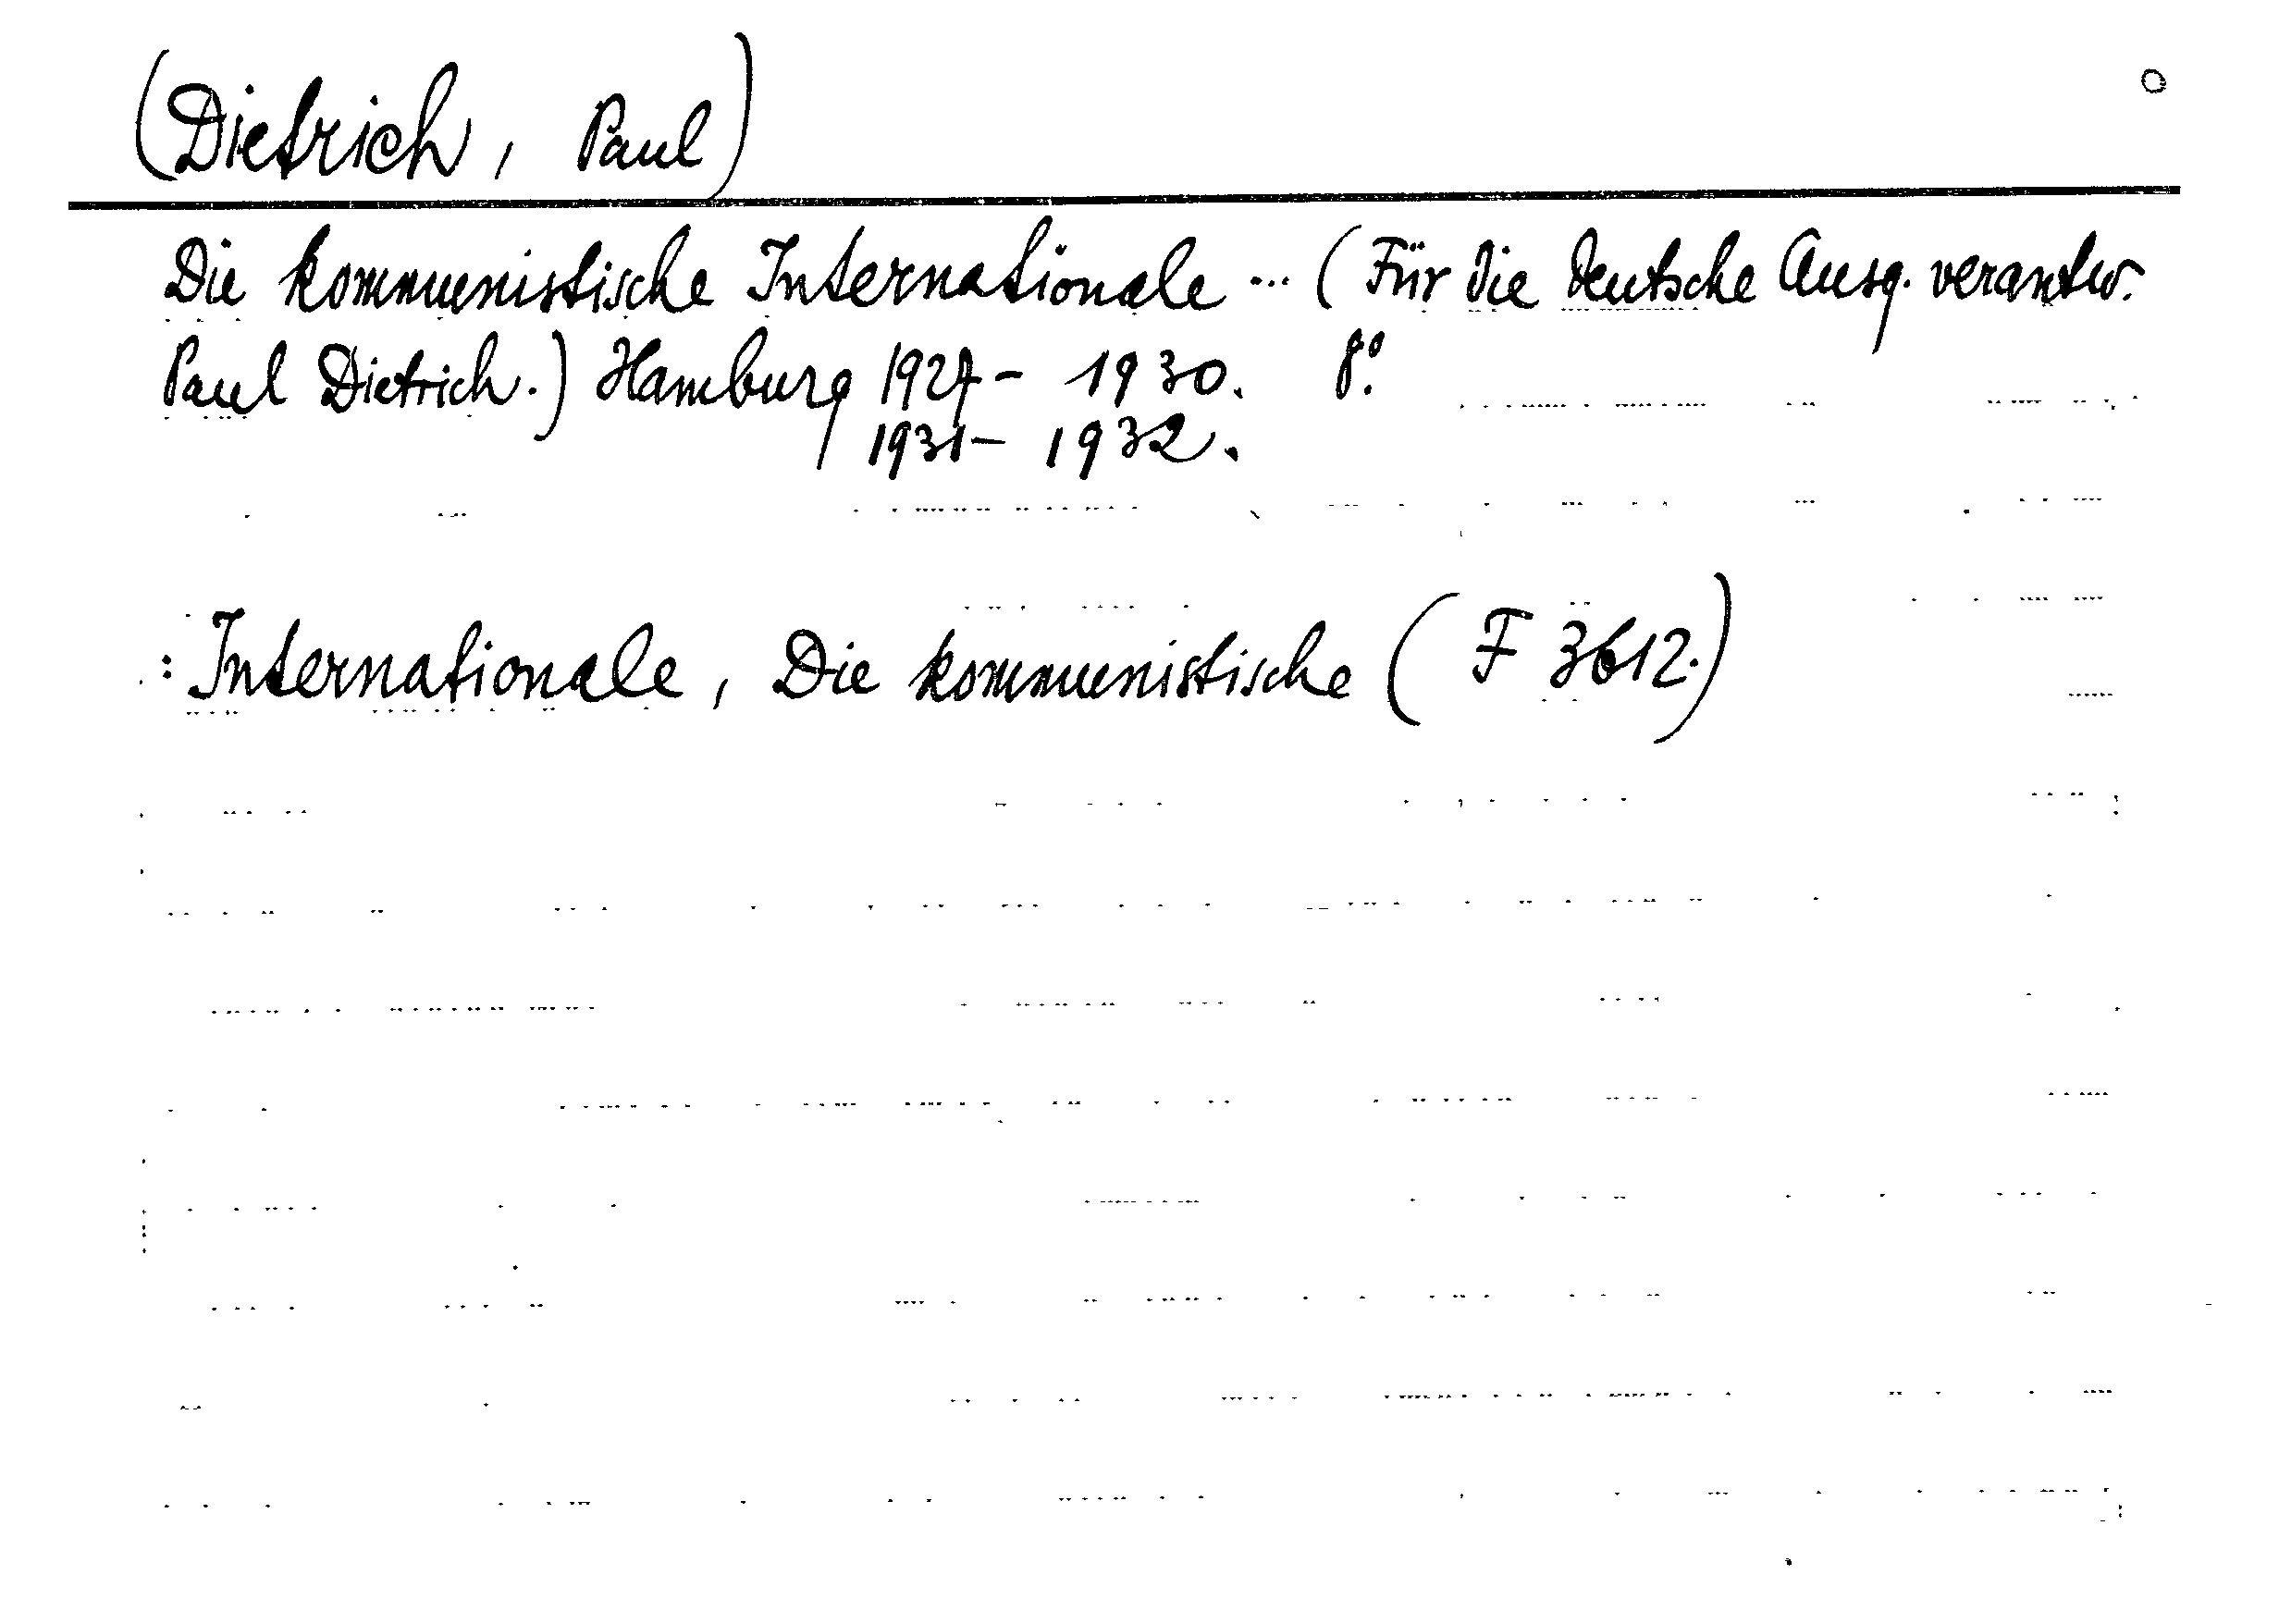 (Dietrich, Paul)
Die kommunistische Internationale ... (Für die deutsche Ausg. verantw.
Paul Dietrich.) Hamburg 1927- 1930. 8º.
1931- 1932.
: Internationale, Die kommunistische (F 3612.)